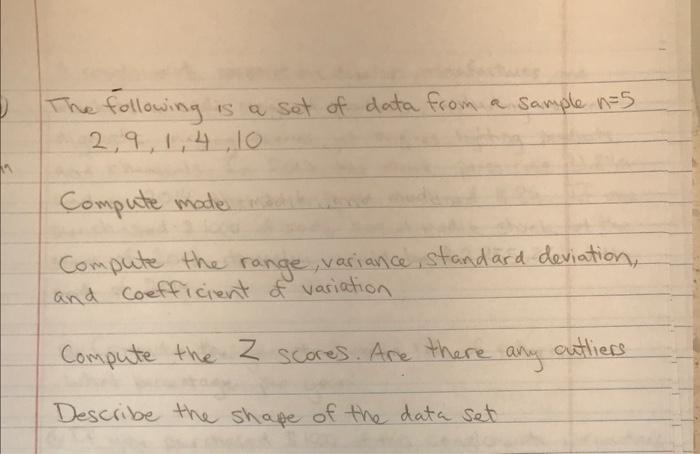 The following is a set of data from a sample n=5
2, 9, 1, 4, 10
Compute mode
Compute the range, variance, standard deviation,
and coefficient of variation
Compute the Z scores. Are there any outliers
Describe the shape of the data set